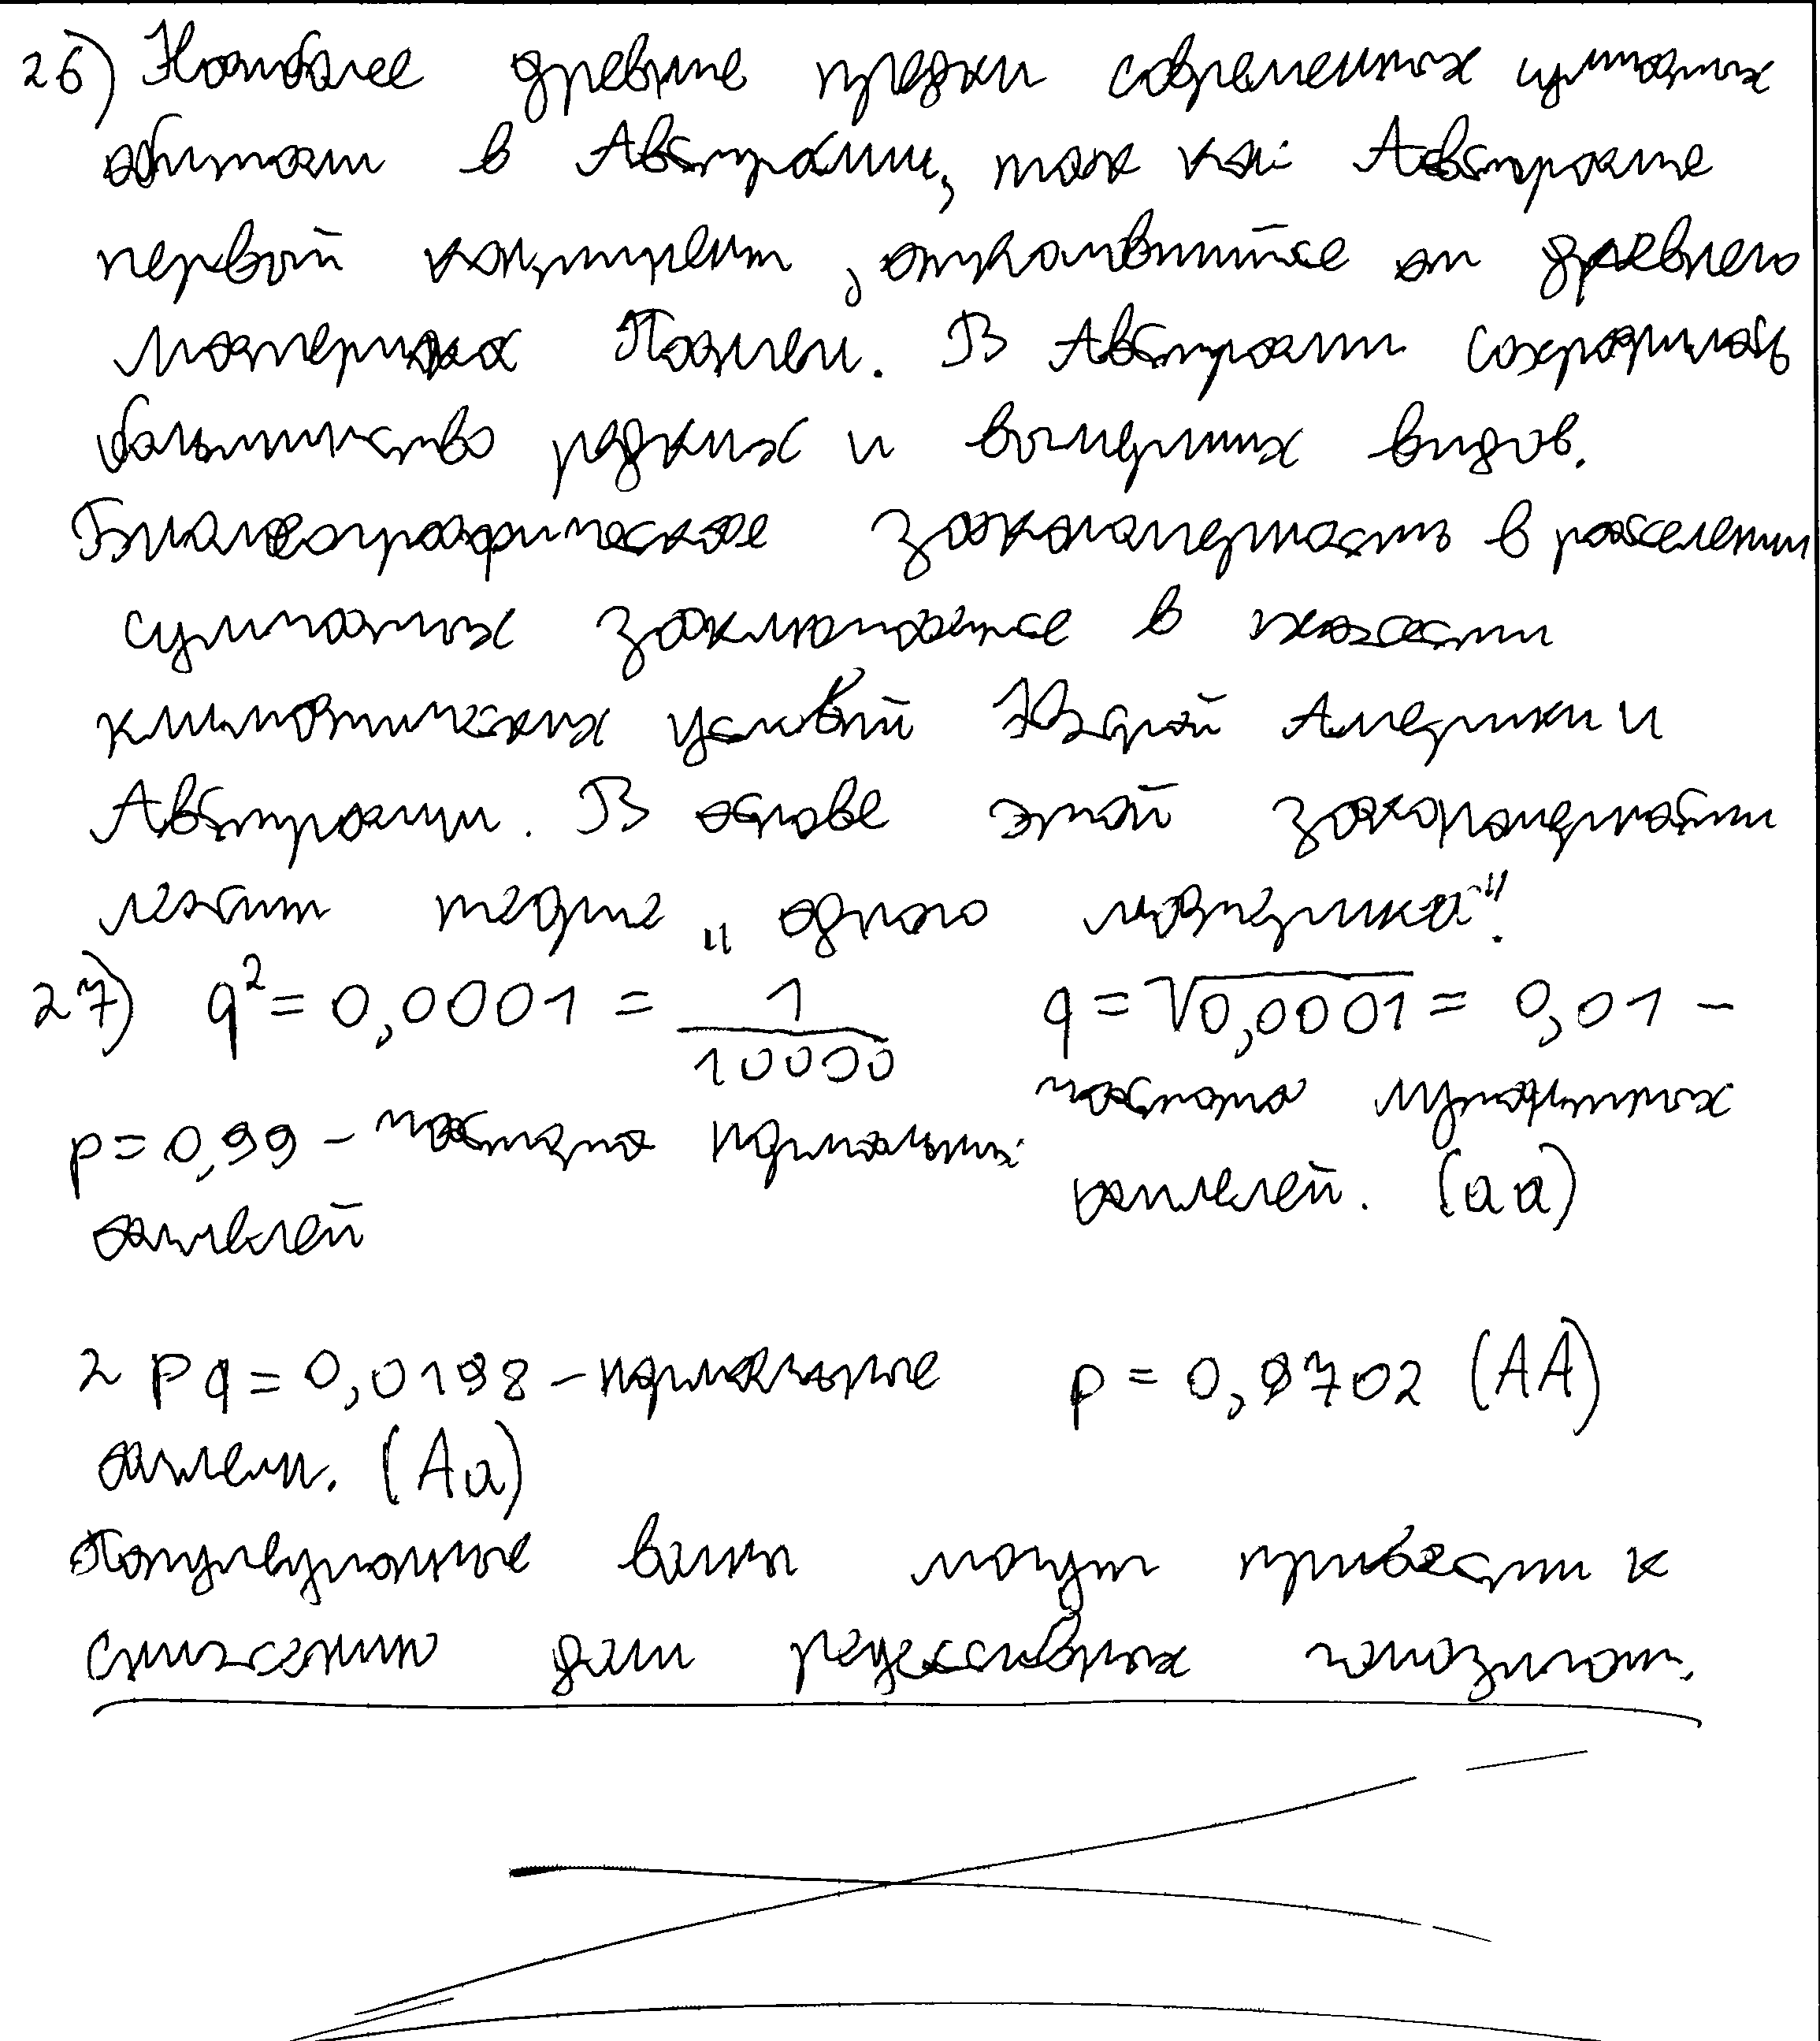 26) Наиболее древние предки современных сумчатых
обитали в Австралии, так как Австралия
первый континент, отколовшийся от древнего
материка Пангеи. В Австралии сохранилось
большинство редких и вымерших видов.
Биогеографическая закономерность в расселении
сумчатых заключается в схожести
климатических условий Южной Америки и
Австралии. В основе этой закономерности
лежит теория „одного материка".
27) q² = 0,0001 = 1/10000 q = √0,0001 = 0,01 –
частота мутантных
p = 0,99 – частота нормальных
аллелей. (aa)
аллелей
2 pq = 0,0198 – нормальные p = 0,9702 (AA)
аллели. (Aa)
Популяционные волны могут привести к
снижению доли рецессивных гомозигот.